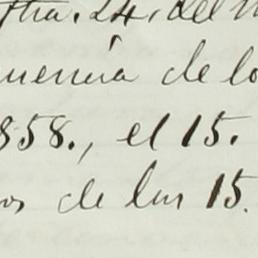 ftra. 24, del
uencia de lo
858., el 15.
os de las 15.